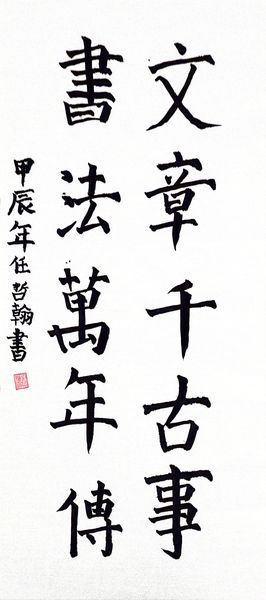 文章千古事
書法萬年傳
甲辰年任哲翰書